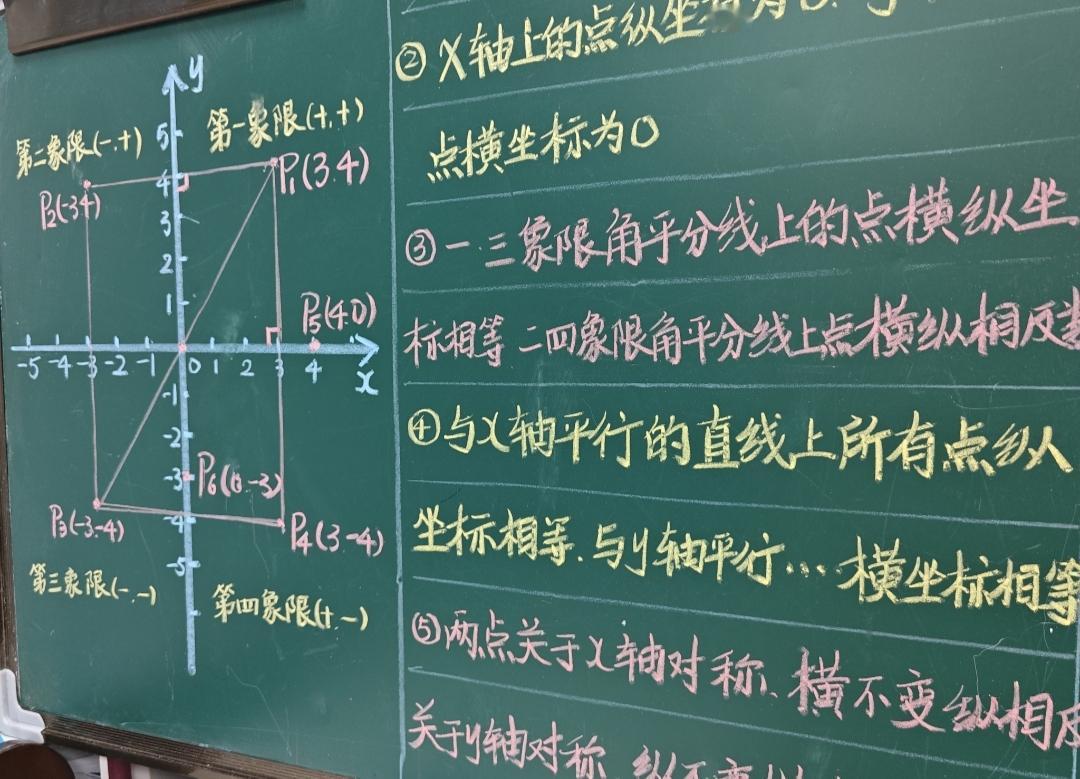 y
第二象限(-,+)
第一象限(+,+)
5
P₂(-3 4)
4
P₁(3.4)
3
2
1
P₅(4.0)
-5 -4 -3 -2 -1 0 1 2 3 4
x
-1
-2
-3
P₆(0 -3)
P₃(-3-4)
-4
P₄(3-4)
-5
第三象限(-,-)
第四象限(+,-)
②X轴上的点纵坐标为0.
点横坐标为0
③一.三象限角平分线上的点横纵坐
标相等 二四象限角平分线上点横纵相反
④与X轴平行的直线上所有点纵
坐标相等.与y轴平行…横坐标相等
⑤两点关于X轴对称、横不变纵相反
关于y轴对称 纵不变